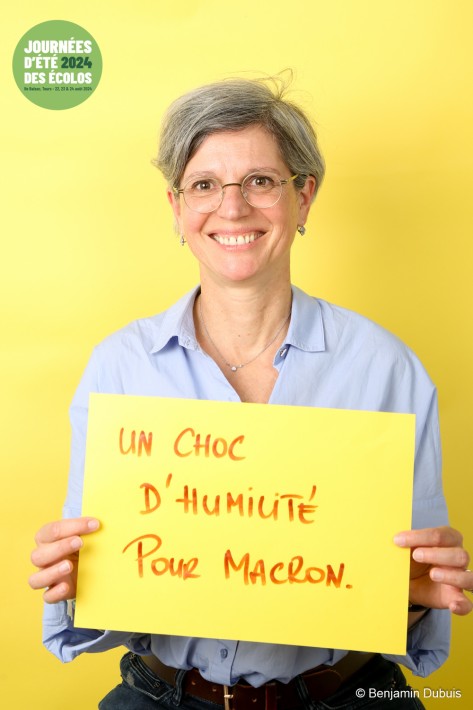 JOURNÉES
D'ÉTÉ 2024
DES ÉCOLOS
UN CHOC
D'HUMILITÉ
POUR MACRON.
© Benjamin Dubuis